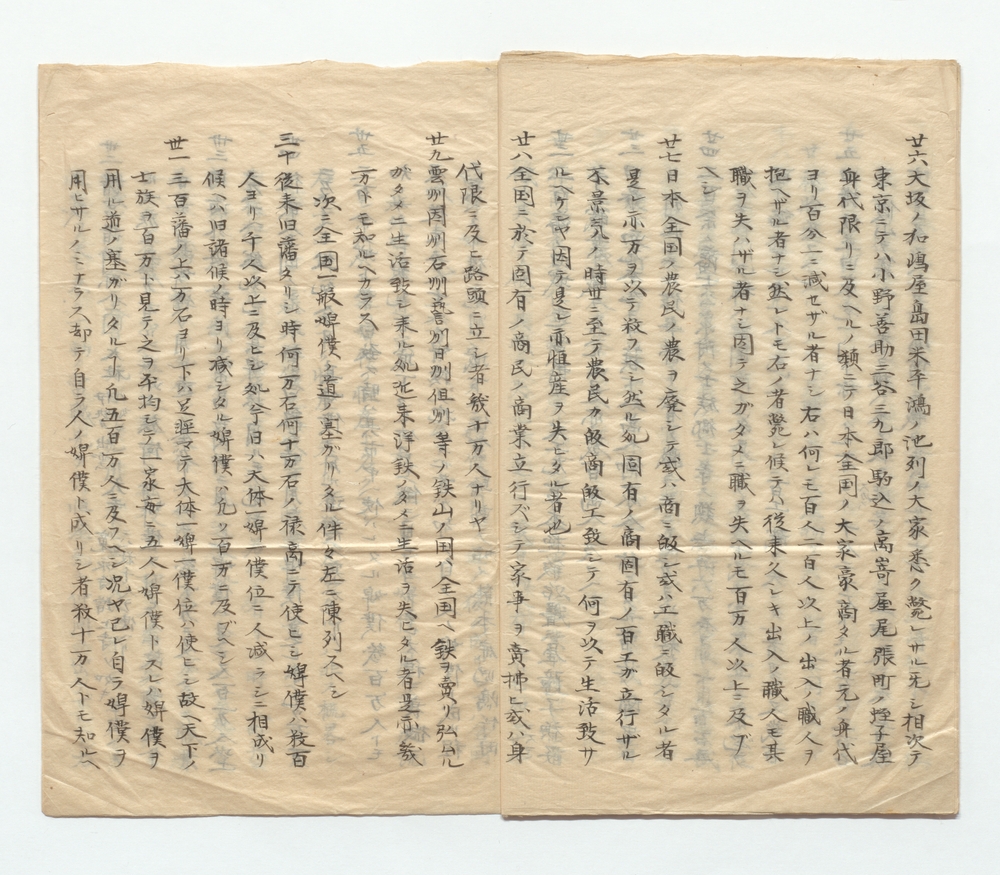 廿六大坂ノ和嶋屋島田米平鴻ノ池列ノ大家悉ク斃レサル先シ相次テ
東京ニテハ小野善助三谷三九郎駒込ノ高嵜屋尾張町ノ恵子屋
身代限リニ及ヘルノ類ニテ日本全国ノ大家豪商タル者元ノ身代
ヨリ百分一ニ減セザル者ナシ右ハ何レモ百人二百人以上ノ出入ノ職人ヲ
抱ヘザル者ナシ然レトモ右ノ者斃レ候テハ従来久ヘキ出入ノ職人モ其
職ヲ失ハザル者ナシ因テ之ガタメニ職ヲ失ヘルモ百万人以上ニ及ブ
ヘシ
廿七日本全国ノ農民ノ農ヲ廃シテ或ハ商ニ皈シ或ハ工職ニ皈シタル者
是レ亦万ヲ以テ殺フヘシ然ル処固有ノ商固有ノ百工ガ立行ザル
不景気ノ時世ニ至テ農民カ皈商皈工致シテ何ヲ以テ生活致サ
ルヘケンヤ因テ是レ亦恒産ヲ失ヒタル者也
廿八全国ニ於テ固有ノ商民ノ商業立行ズシテ家事ヲ賣拂ヒ或ハ身
代限ニ及ヒ路頭ニ立シ者幾十万人ナリヤ
廿九雲州因州石州藝州日州但州等ノ鉄山ノ国ハ全国ヘ鉄ヲ賣リ弘ムル
ガタメニ生活致シ来ル処近来洋鉄ノタメニ生活ヲ失ヒタル者是亦幾
万人トモ知ルヘカラス
次ニ全国一般婢僕ノ道ノ塞ガリタル件々左ニ陳列スヘシ
三十従来旧藩タリシ時何万石何十万石ノ禄高ニテ使ヒシ婢僕ハ数百
人ヨリ千人以上ニ及ヒシ処今日ハ大体一婢一僕位ニ人減ラシニ相成リ
候ヘハ旧諸候ノ時ヨリ減シタル婢僕ハ凡ソ百万ニ及ブヘシ
丗一三百藩ノ上六万石ヨリ下ハ足軽マテ大体一婢一僕位ハ使ヒシ故ヘ天下ノ
士族ヲ百万ト見テ之ヲ平均シテ何家毎ニ五人ノ婢僕トスレハ婢僕ヲ
用ル道ノ塞ガリタルヿ凡五百万人ニ及フヘシ况ヤ已レ自ラ婢僕ヲ
用ヒサルノミナラス却テ自ラ人ノ婢僕ト成リシ者数十万人トモ知ルヘ